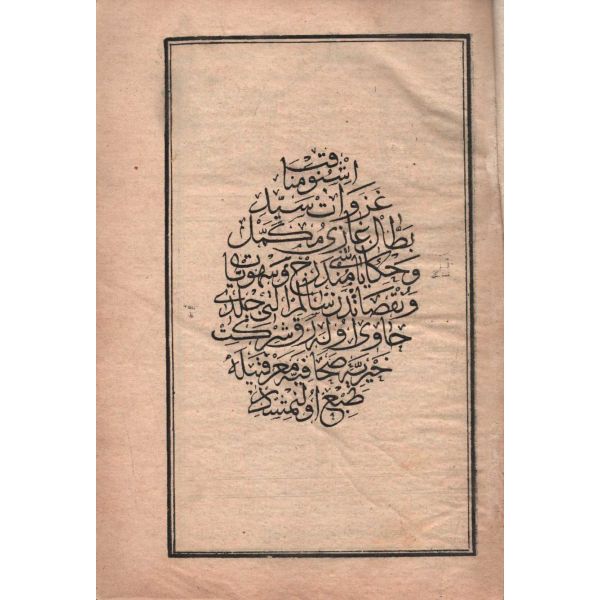 اشبو مناقب
غزوات سيد
بطال غازى مكمل
و حكاياتى مندرج و سهويات
و نقصاندن سالم التى جلدى
حاوى اوله رق شركت
خيريۀ صحافيه معرفتيله
طبع اولنمشدر